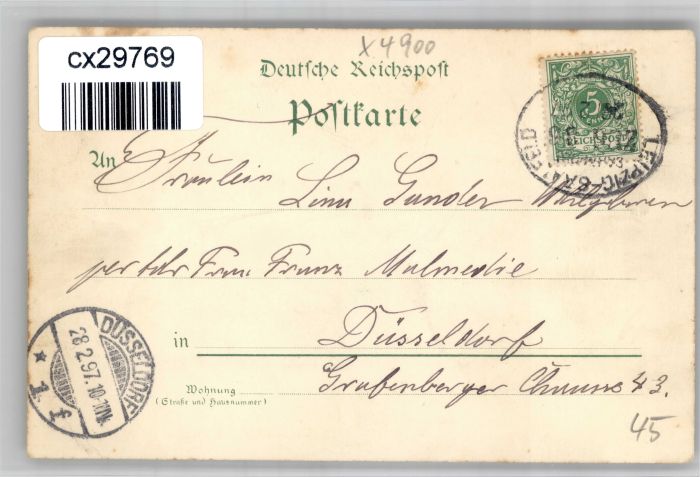 cx29769
x4900
Deutsche Reichspost
Postkarte
5
REICHSPOST
LEIPZIG
An Fräulein Linn Gander
per adr Frau Franz Malmedie
in Düsseldorf
Grafenberger Chaussee 43.
Wohnung
(Straße und Hausnummer)
DÜSSELDORF
28.2.97.10-11N.
* 1 f
45